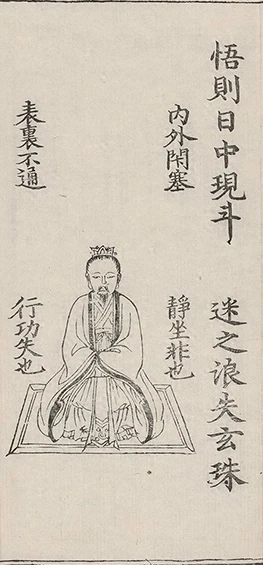 悟則日中現斗
迷之浪失玄珠
內外閉塞
靜坐非也
表裏不通
行功失也